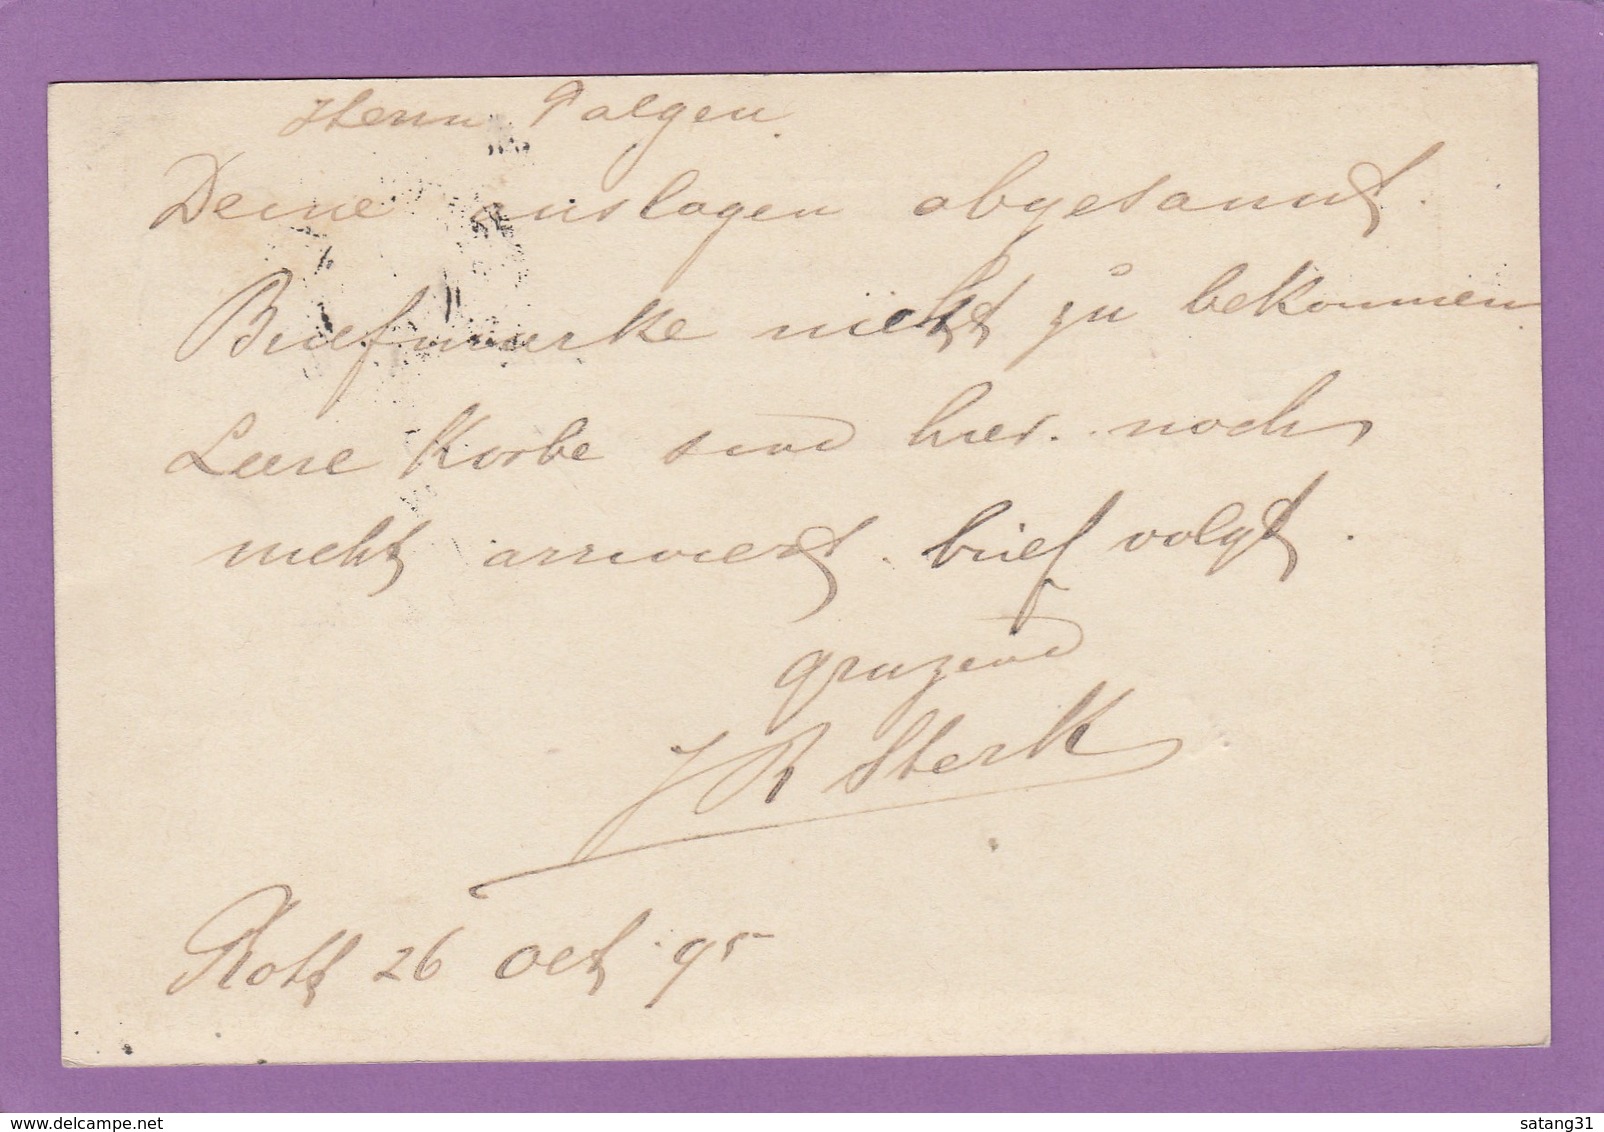 Herrn Palgen.
Deine auslagen abgesannt.
Briefmarke nicht zu bekommen
Leere Korbe sind hier noch
nicht arriviert. brief volgt.
gruzend
J R Sterk
Rott 26 Oct 95
www.delcampe.net
satang31